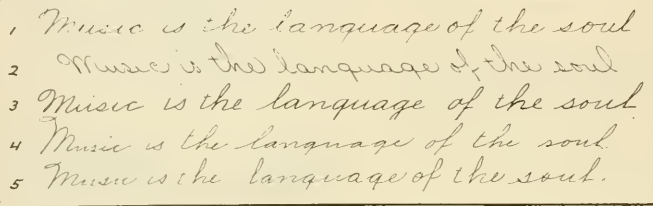 1 Music is the language of the soul
2 Music is the language of the soul
3 Music is the language of the soul
4 Music is the language of the soul.
5 Music is the language of the soul.